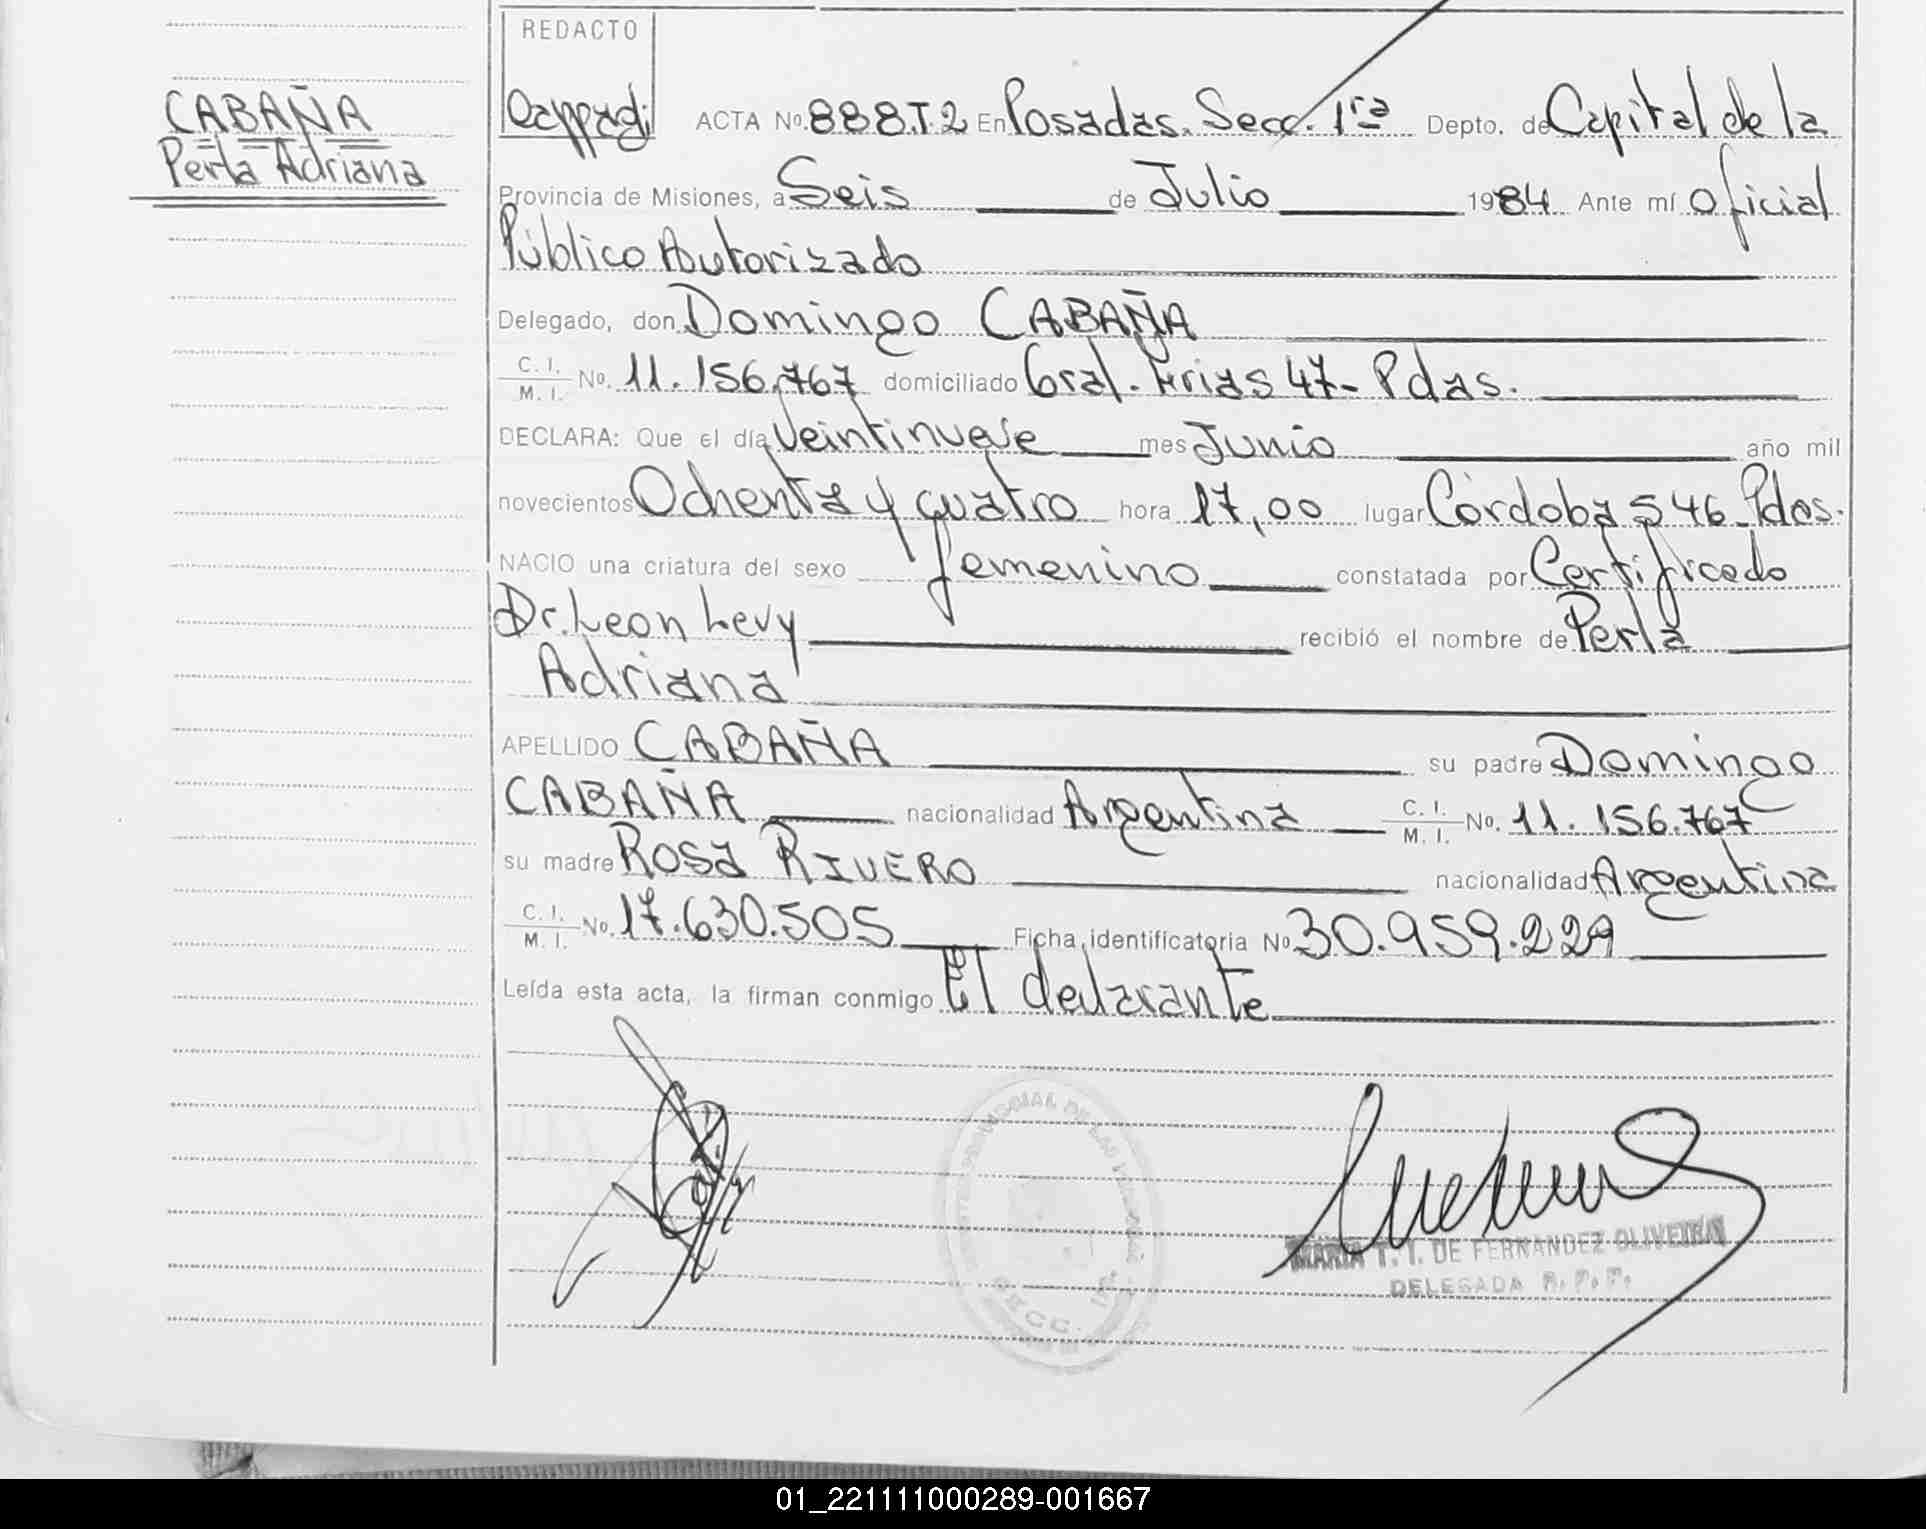 REDACTO
CABAÑA
Perla Adriana
ACTA Nº. 888.T.2 En Posadas. Secc. 1ra Depto. de Capital de la
Provincia de Misiones, a Seis de Julio 1984 Ante mí Oficial
Público Autorizado
Delegado, don Domingo CABAÑA
C. I. / M. I. No. 11.156.767 domiciliado Gral. Frias 47- Pdas.
DECLARA: Que el día Veintinueve mes Junio año mil
novecientos Ochenta y cuatro hora 17,00 lugar Córdoba 546_Pdas.
NACIO una criatura del sexo femenino constatada por Certificado
Dr. Leon Levy recibió el nombre de Perla
Adriana
APELLIDO CABAÑA su padre Domingo
CABAÑA nacionalidad Argentina C. I. / M. I. No. 11.156.767
su madre ROSA RIVERO nacionalidad Argentina
C. I. / M. I. No. 17.630.505 Ficha identificatoria No 30.959.229
Leída esta acta, la firman conmigo El declarante
MARIA T. I. DE FERNANDEZ OLIVEIRA
DELEGADA R. P. P.
SECC. 1ra.
01_221111000289-001667